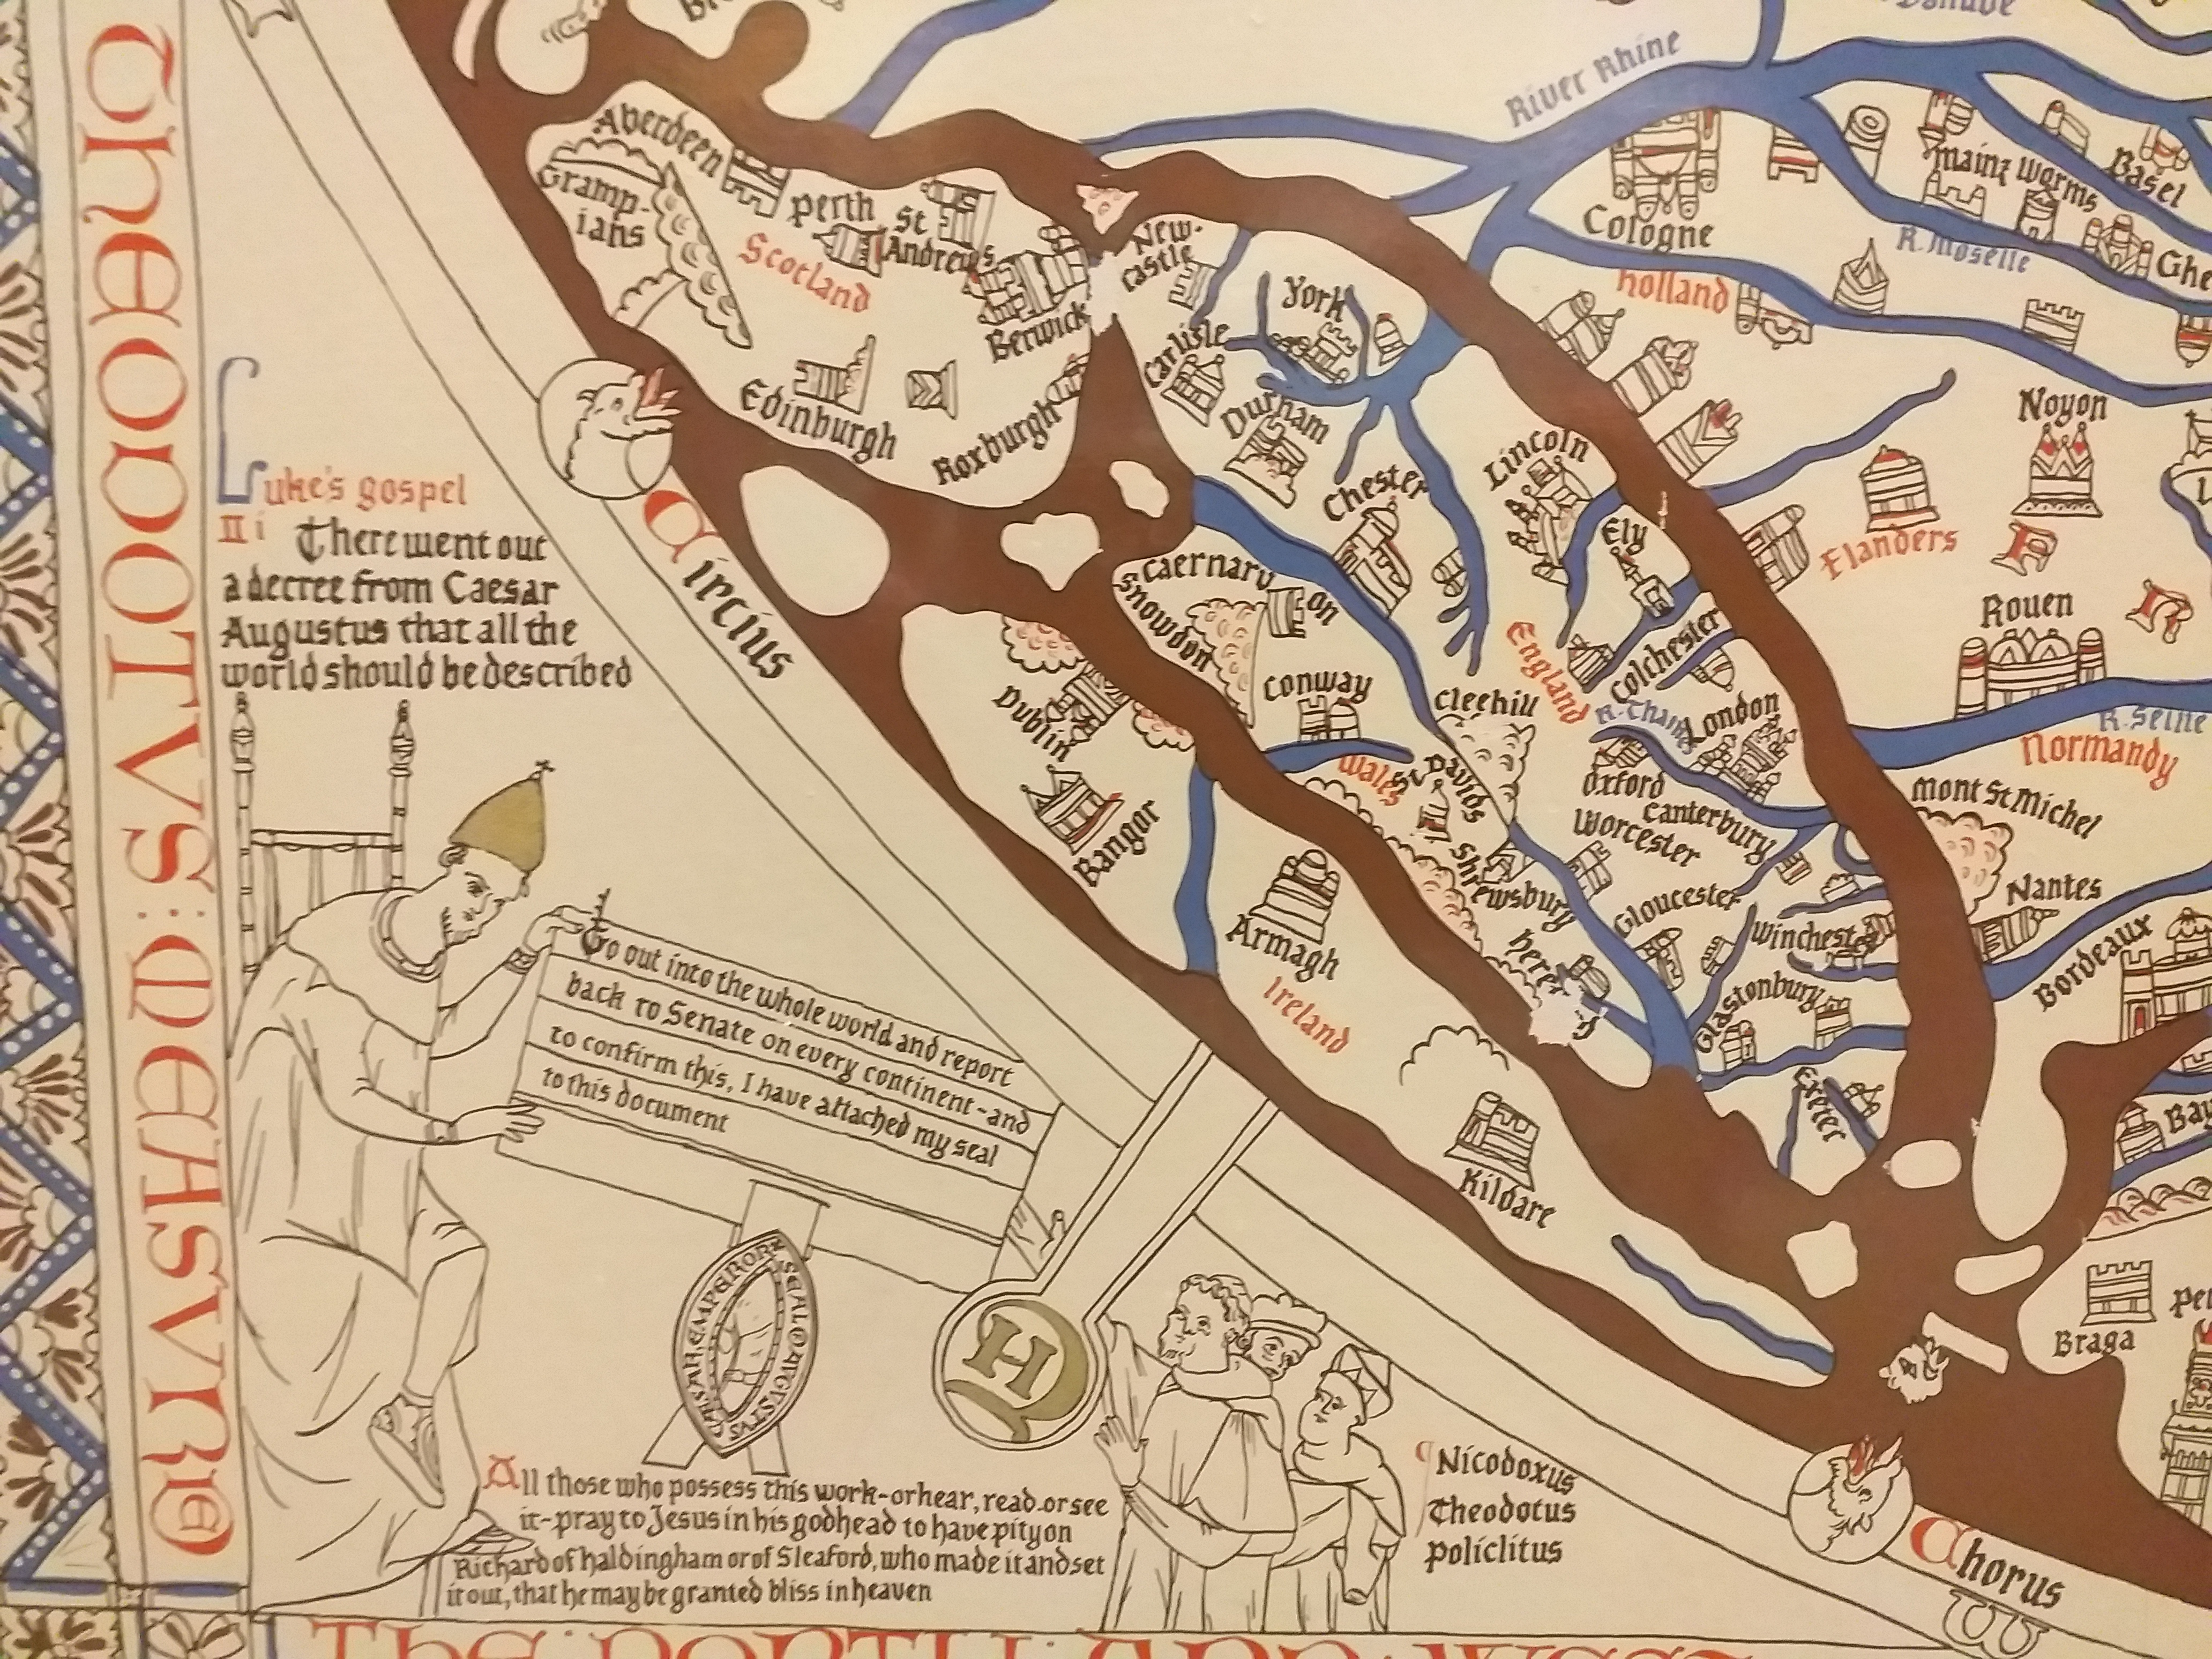 Theodotvs: Measvr
Luke's gospel
II i There went out
a decree from Caesar
Augustus that all the
world should be described
Go out into the whole world and report
back to Senate on every continent - and
to confirm this, I have attached my seal
to this document
SEAL OF AVGVSTVS CAESAR EMPEROR
All those who possess this work - or hear, read or see
it - pray to Jesus in his godhead to have pity on
Richard of haldingham or of Sleaford, who made it and set
it out, that he may be granted bliss in heaven
Nicodoxus
Theodotus
Policlitus
THE : NORTH : AND : WEST
Circius
Chorus
W
Aberdeen
Gramp-
ians
Perth
St
Andrews
Scotland
Berwick
Edinburgh
Roxburgh
New-
castle
York
Carlisle
Durham
Chester
Lincoln
Ely
Caernarv
on
Snowdon
Conway
Cleehill
England
Colchester
R. Thames
London
Wales
St Davids
Oxford
Canterbury
Worcester
Shrewsbury
Gloucester
Winchester
Glastonbury
Exeter
Dublin
Bangor
Armagh
Ireland
Kildare
River Rhine
Danube
Cologne
Mainz
Worms
Basel
R. Moselle
Ghe
holland
Noyon
Flanders
Rouen
R. Seine
Normandy
Mont St Michel
Nantes
Bordeaux
Bay
Braga
Pe